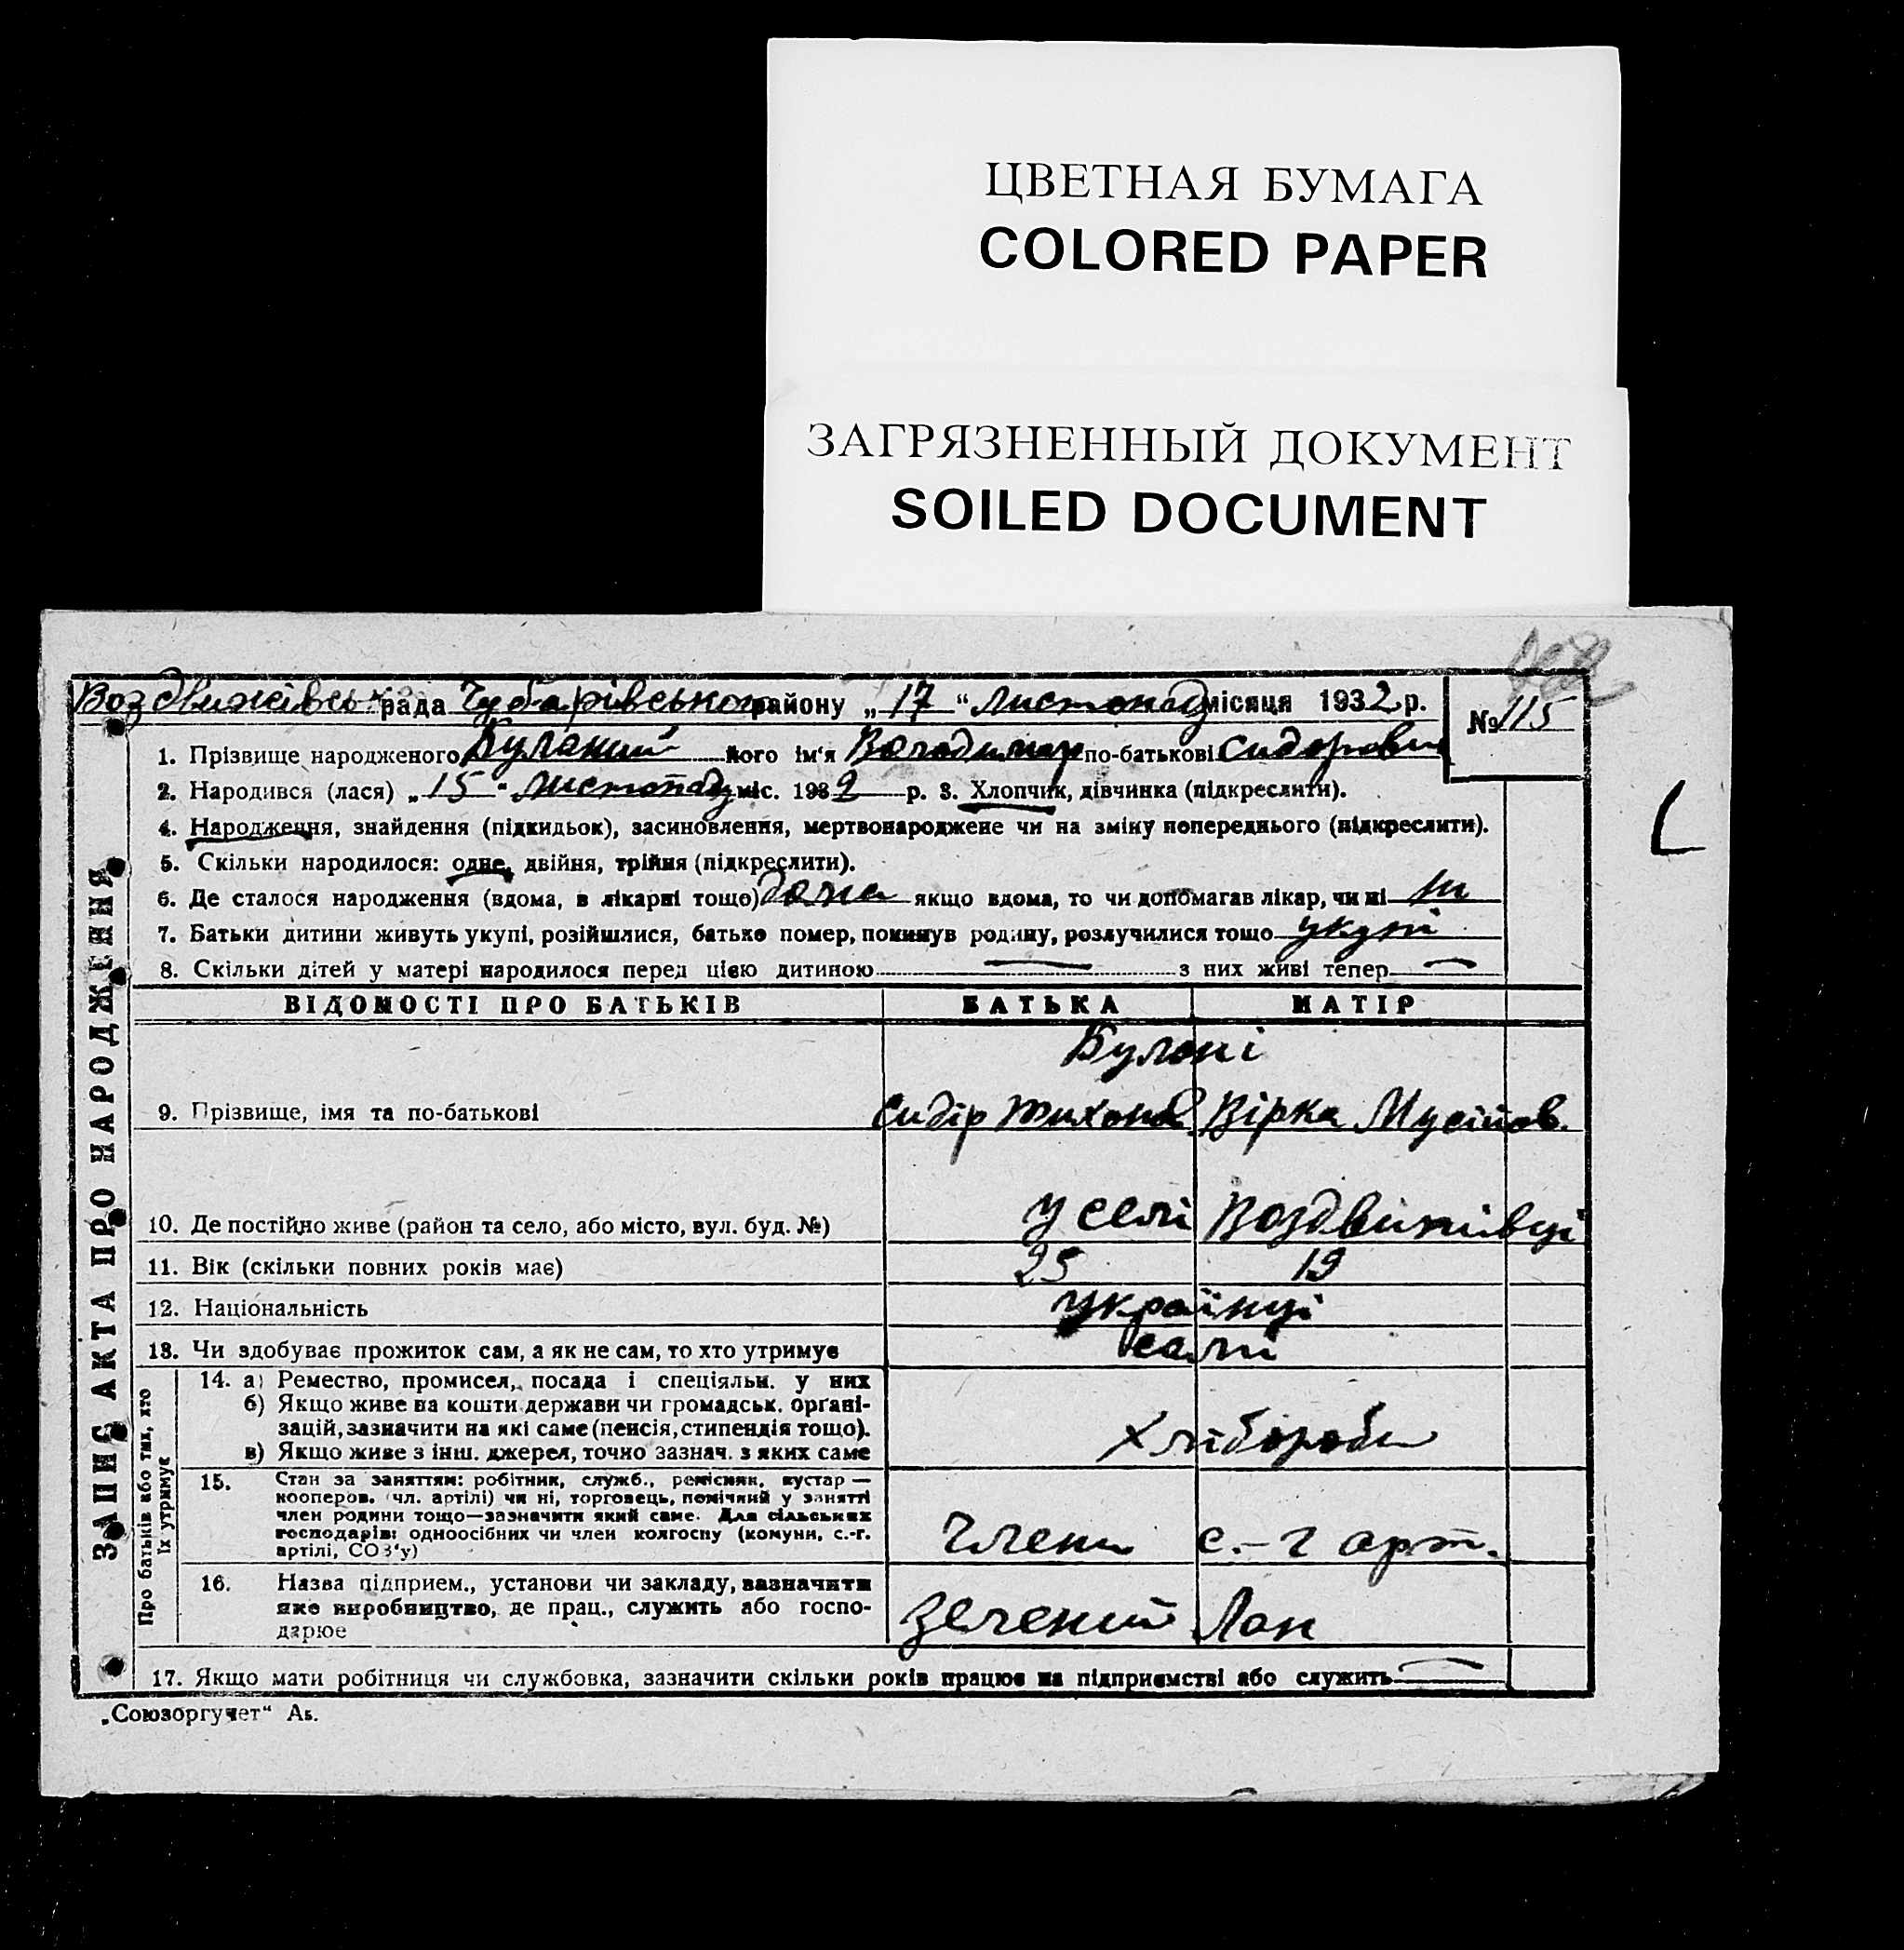 ЦВЕТНАЯ БУМАГА
COLORED PAPER
ЗАГРЯЗНЕННЫЙ ДОКУМЕНТ
SOILED DOCUMENT
Воздвижівська рада Чубарівського району „17“ листопад місяця 1932 р.
№ 115
1. Прізвище народженого Буланий його ім‘я Володимир по-батькові Сидорович
2. Народився (лася) „15“ листопаду міс. 1932 р. 3. Хлопчик, дівчинка (підкреслити).
4. Народження, знайдення (підкидьок), засиновлення, мертвонароджене чи на зміну попереднього (підкреслити).
5. Скільки народилося: одне, двійня, трійня (підкреслити).
6. Де сталося народження (вдома, в лікарні тощо) дома якщо вдома, то чи допомагав лікар, чи ні ні
7. Батьки дитини живуть укупі, розійшлися, батько помер, покинув родину, розлучилися тощо укупі
8. Скільки дітей у матері народилося перед цією дитиною — з них живі тепер —
ЗАПИС АКТА ПРО НАРОДЖЕННЯ
ВІДОМОСТІ ПРО БАТЬКІВ БАТЬКА МАТІР
Булані
9. Прізвище, імя та по-батькові Сидір Тихонов. Вірка Мусійов.
10. Де постійно живе (район та село, або місто, вул. буд. №) у селі Воздвижівці
11. Вік (скільки повних років має) 25 19
12. Національність українці
13. Чи здобуває прожиток сам, а як не сам, то хто утримує сами
Про батьків або тих, хто
їх утримує
14. а) Ремество, промисел, посада і спеціяльн. у них
б) Якщо живе на кошти держави чи громадськ. органі-
зацій, зазначити на які саме (пенсія, стипендія тощо).
в) Якщо живе з інш. джерел, точно зазнач. з яких саме
Хлібороби
15. Стан за заняттям: робітник, служб., ремісник, кустар —
кооперов. (чл. артілі) чи ні, торговець, помічний у занятті
член родини тощо—зазначити який саме. Для сільських
господарів: одноосібних чи член колгоспу (комуни, с.-г.
артілі, СОЗ‘у)
Члени с.-г арт.
16. Назва підприєм., установи чи закладу, зазначити
яке виробництво, де прац., служить або госпо-
дарює
Зелений Лан
17. Якщо мати робітниця чи службовка, зазначити скільки років працює на підприємстві або служить —
„Союзоргучет“ Аь.